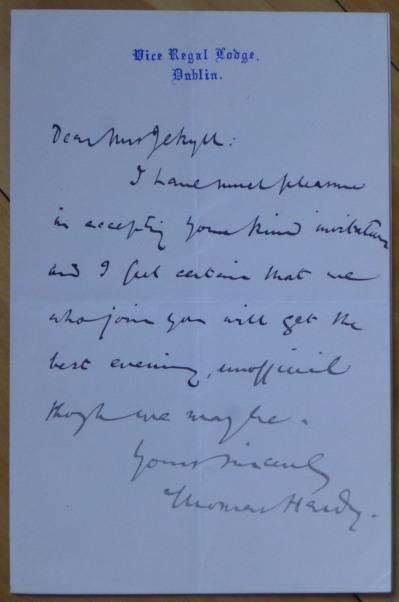 Vice Regal Lodge,
Dublin.
Dear Mrs Jekyll:
I have much pleasure
in accepting your kind invitation
and I feel certain that we
who join you will get the
best evening, unofficial
though we may be.
Yours sincerely
Thomas Hardy.